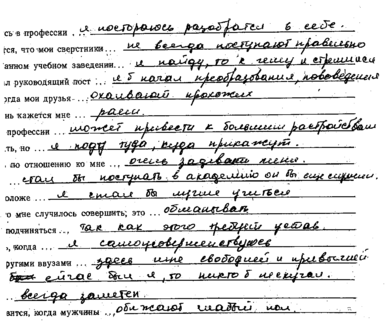 сь в профессии ... я постораюсь разобратся в себе.
тся, что мои сверстники... не всегда поступают правильно
анном учебном заведении... я найду, то к чему и стремился
ал руководящий пост ... я б начал преобразования, нововедения
огда мои друзья... охаивают прохожих
нь кажется мне ... раем.
профессии ... может привести к большим растройствам
ть, но ... я пойду туда, куда прикажут.
. по отношению ко мне ... очень задевают меня.
... стал бы поступать в академию он бы
оложе ... я стал бы лучше учиться
о мне случилось совершить; это ... обманывать
подчиняться ... так как этого требует устав.
ь, когда ... я самоусовершенствуюсь
ругими ввузами ... здесь иные свободней и привычней
сейчас был я, то никто б нескучал.
... всегда заметен
вится, когда мужчины ... обижают слабый пол.